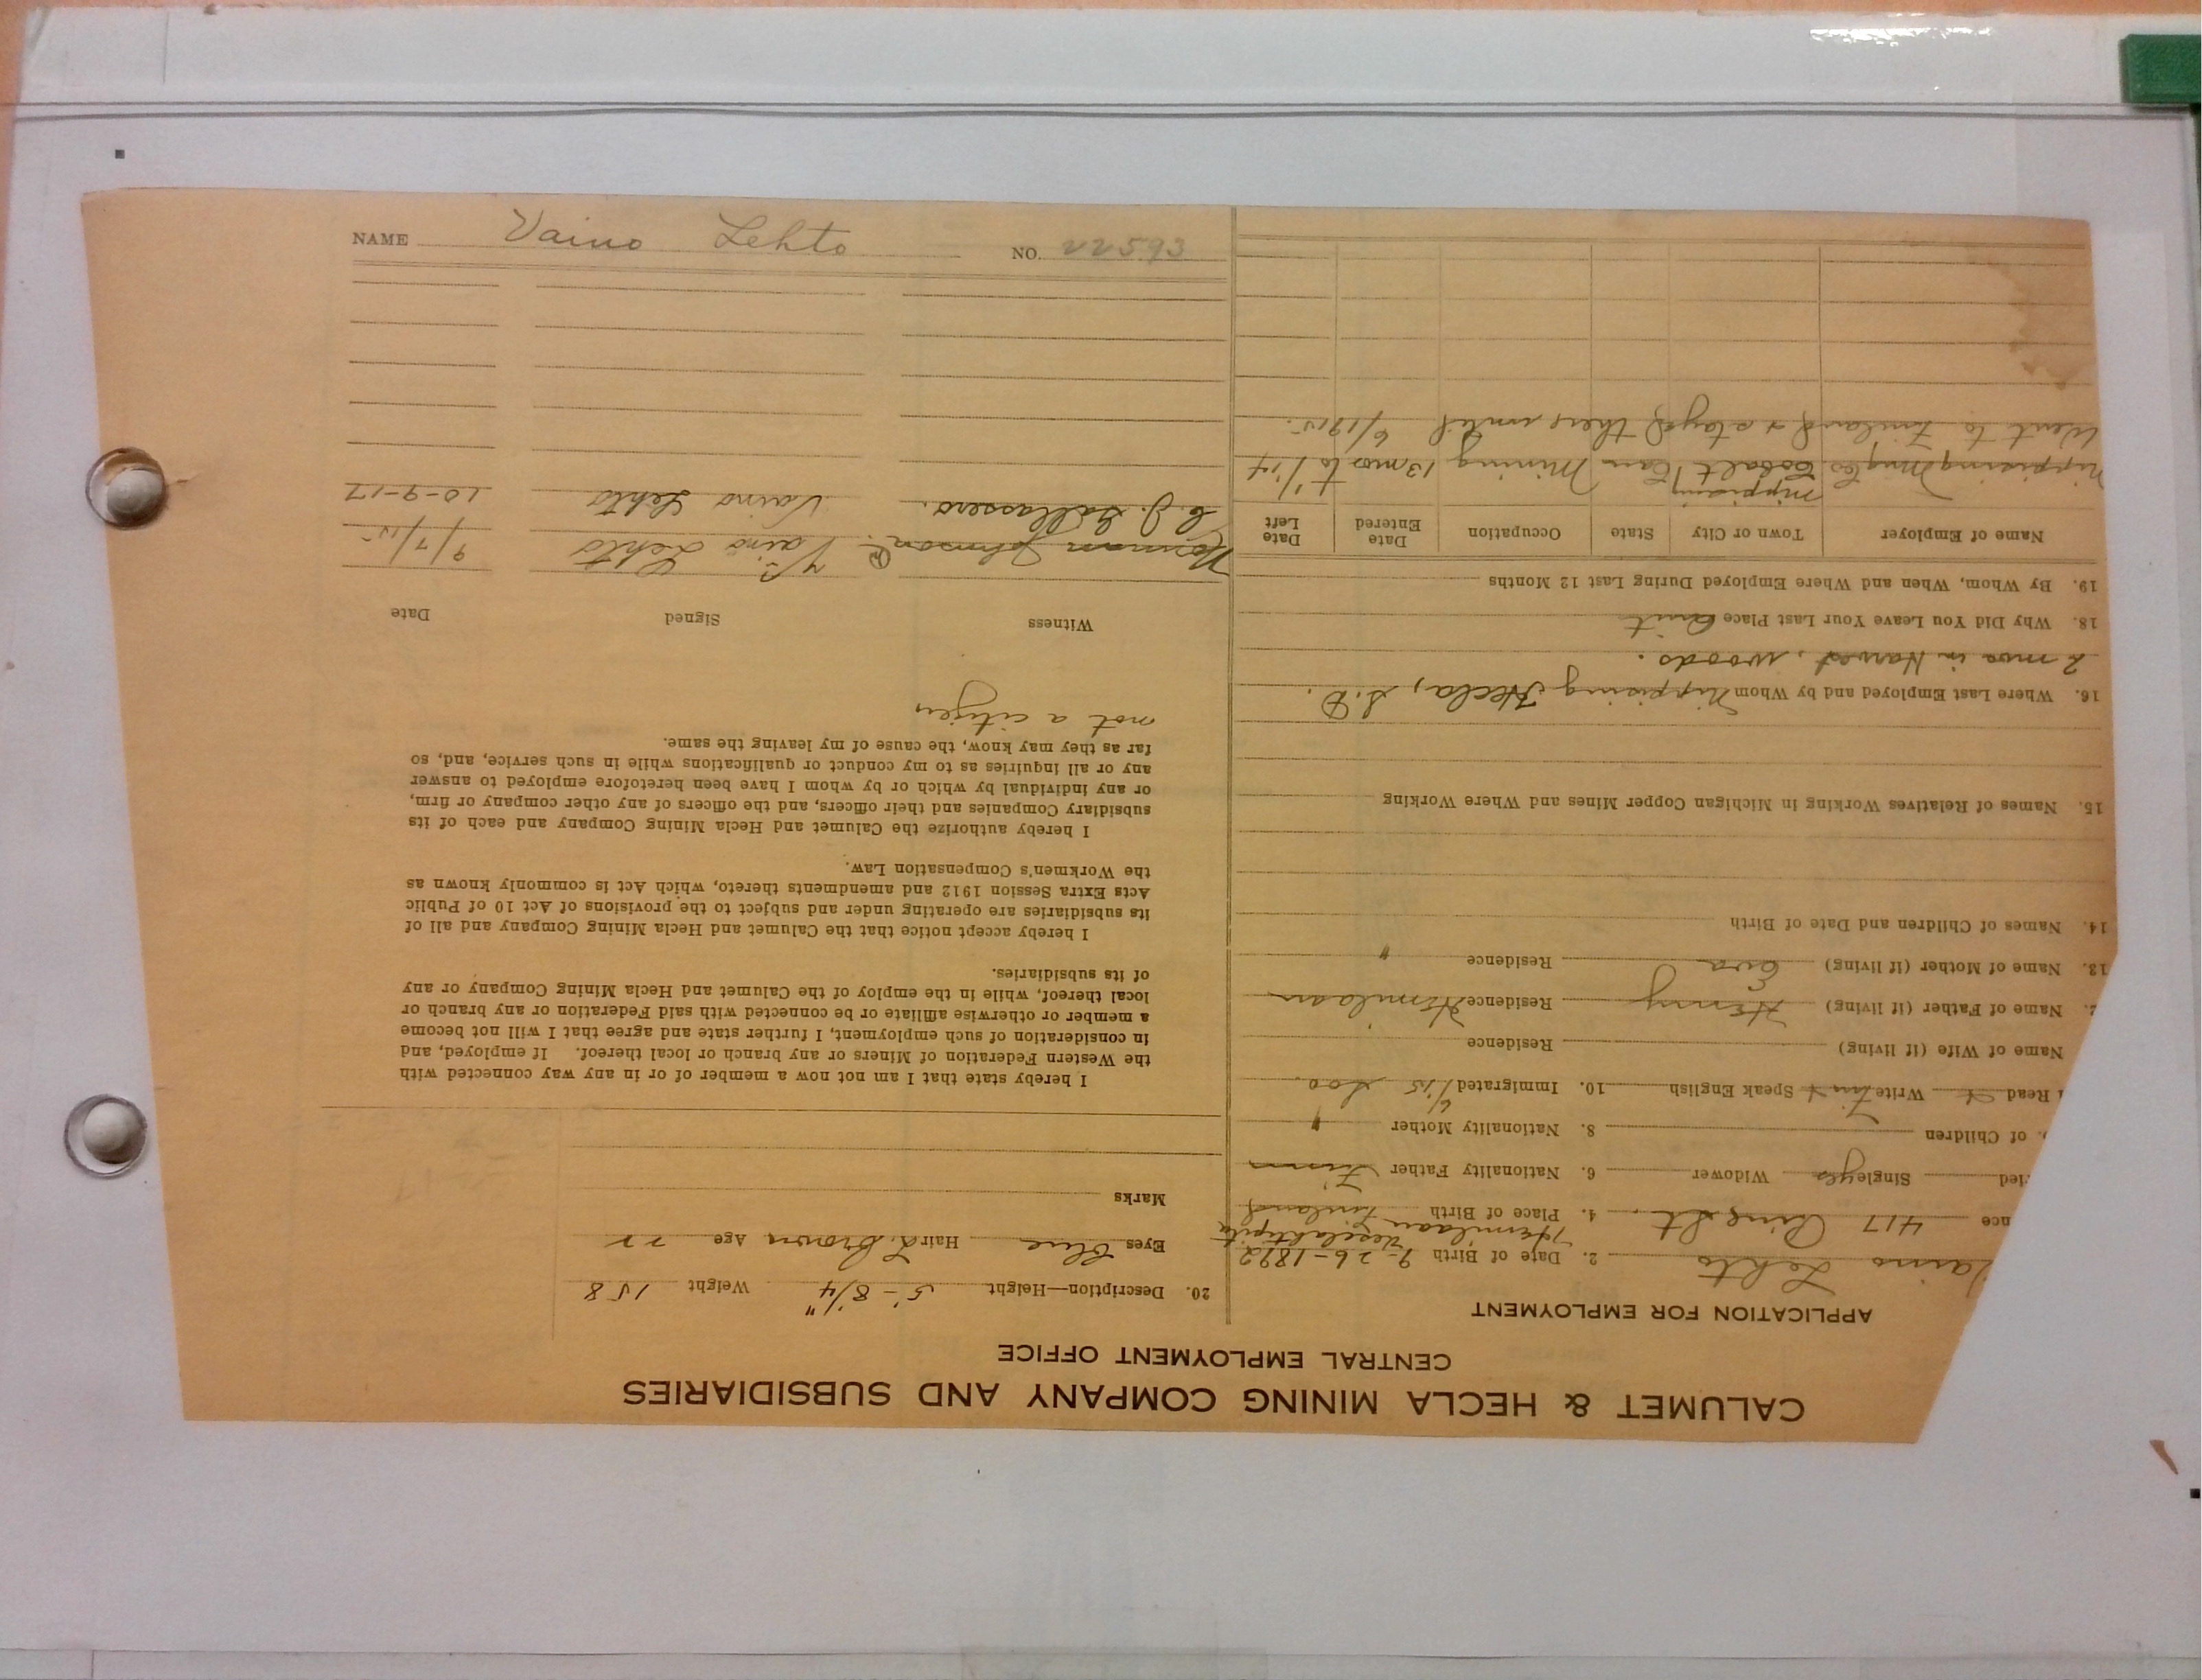 CALUMET & HECLA MINING COMPANY AND SUBSIDIARIES
CENTRAL EMPLOYMENT OFFICE
APPLICATION FOR EMPLOYMENT
Vaino Lehto 2. Date of Birth 9-26-1892
nce 417 Pine St. 4. Place of Birth Finland
ried Single yes Widower 6. Nationality Father Finn
of Children 8. Nationality Mother "
Read + Write Finn + Speak English 10. Immigrated 6/15 Soo.
Name of Wife (if living) Residence
2. Name of Father (if living) Henry Residence
13. Name of Mother (if living) Eva Residence "
14. Names of Children and Date of Birth
15. Names of Relatives Working in Michigan Copper Mines and Where Working
16. Where Last Employed and by Whom Nippising Hecla, S.D.
2 mos in Harvest, woods.
18. Why Did You Leave Your Last Place Quit
19. By Whom, When and Where Employed During Last 12 Months
Name of Employer Town or City State Occupation Date Entered Date Left
Nippising
Nippising Mng Co Cobalt Can Mining 13 mos to 1/14
Went to Finland & stayed there until 6/1915.
20. Description—Height 5'-8 1/4" Weight 158
Eyes Blue Hair L. Brown Age 22
Marks
I hereby state that I am not now a member of or in any way connected with
the Western Federation of Miners or any branch or local thereof. If employed, and
in consideration of such employment, I further state and agree that I will not become
a member or otherwise affiliate or be connected with said Federation or any branch or
local thereof, while in the employ of the Calumet and Hecla Mining Company or any
of its subsidiaries.
I hereby accept notice that the Calumet and Hecla Mining Company and all of
its subsidiaries are operating under and subject to the provisions of Act 10 of Public
Acts Extra Session 1912 and amendments thereto, which Act is commonly known as
the Workmen's Compensation Law.
I hereby authorize the Calumet and Hecla Mining Company and each of its
subsidiary Companies and their officers, and the officers of any other company or firm,
or any individual by which or by whom I have been heretofore employed to answer
any or all inquiries as to my conduct or qualifications while in such service, and, so
far as they may know, the cause of my leaving the same.
not a citizen
Witness Signed Date
Norman Johnson Vaino Lehto 9/7/15
Vaino Lehto 10-9-17
NAME Vaino Lehto NO. 22593